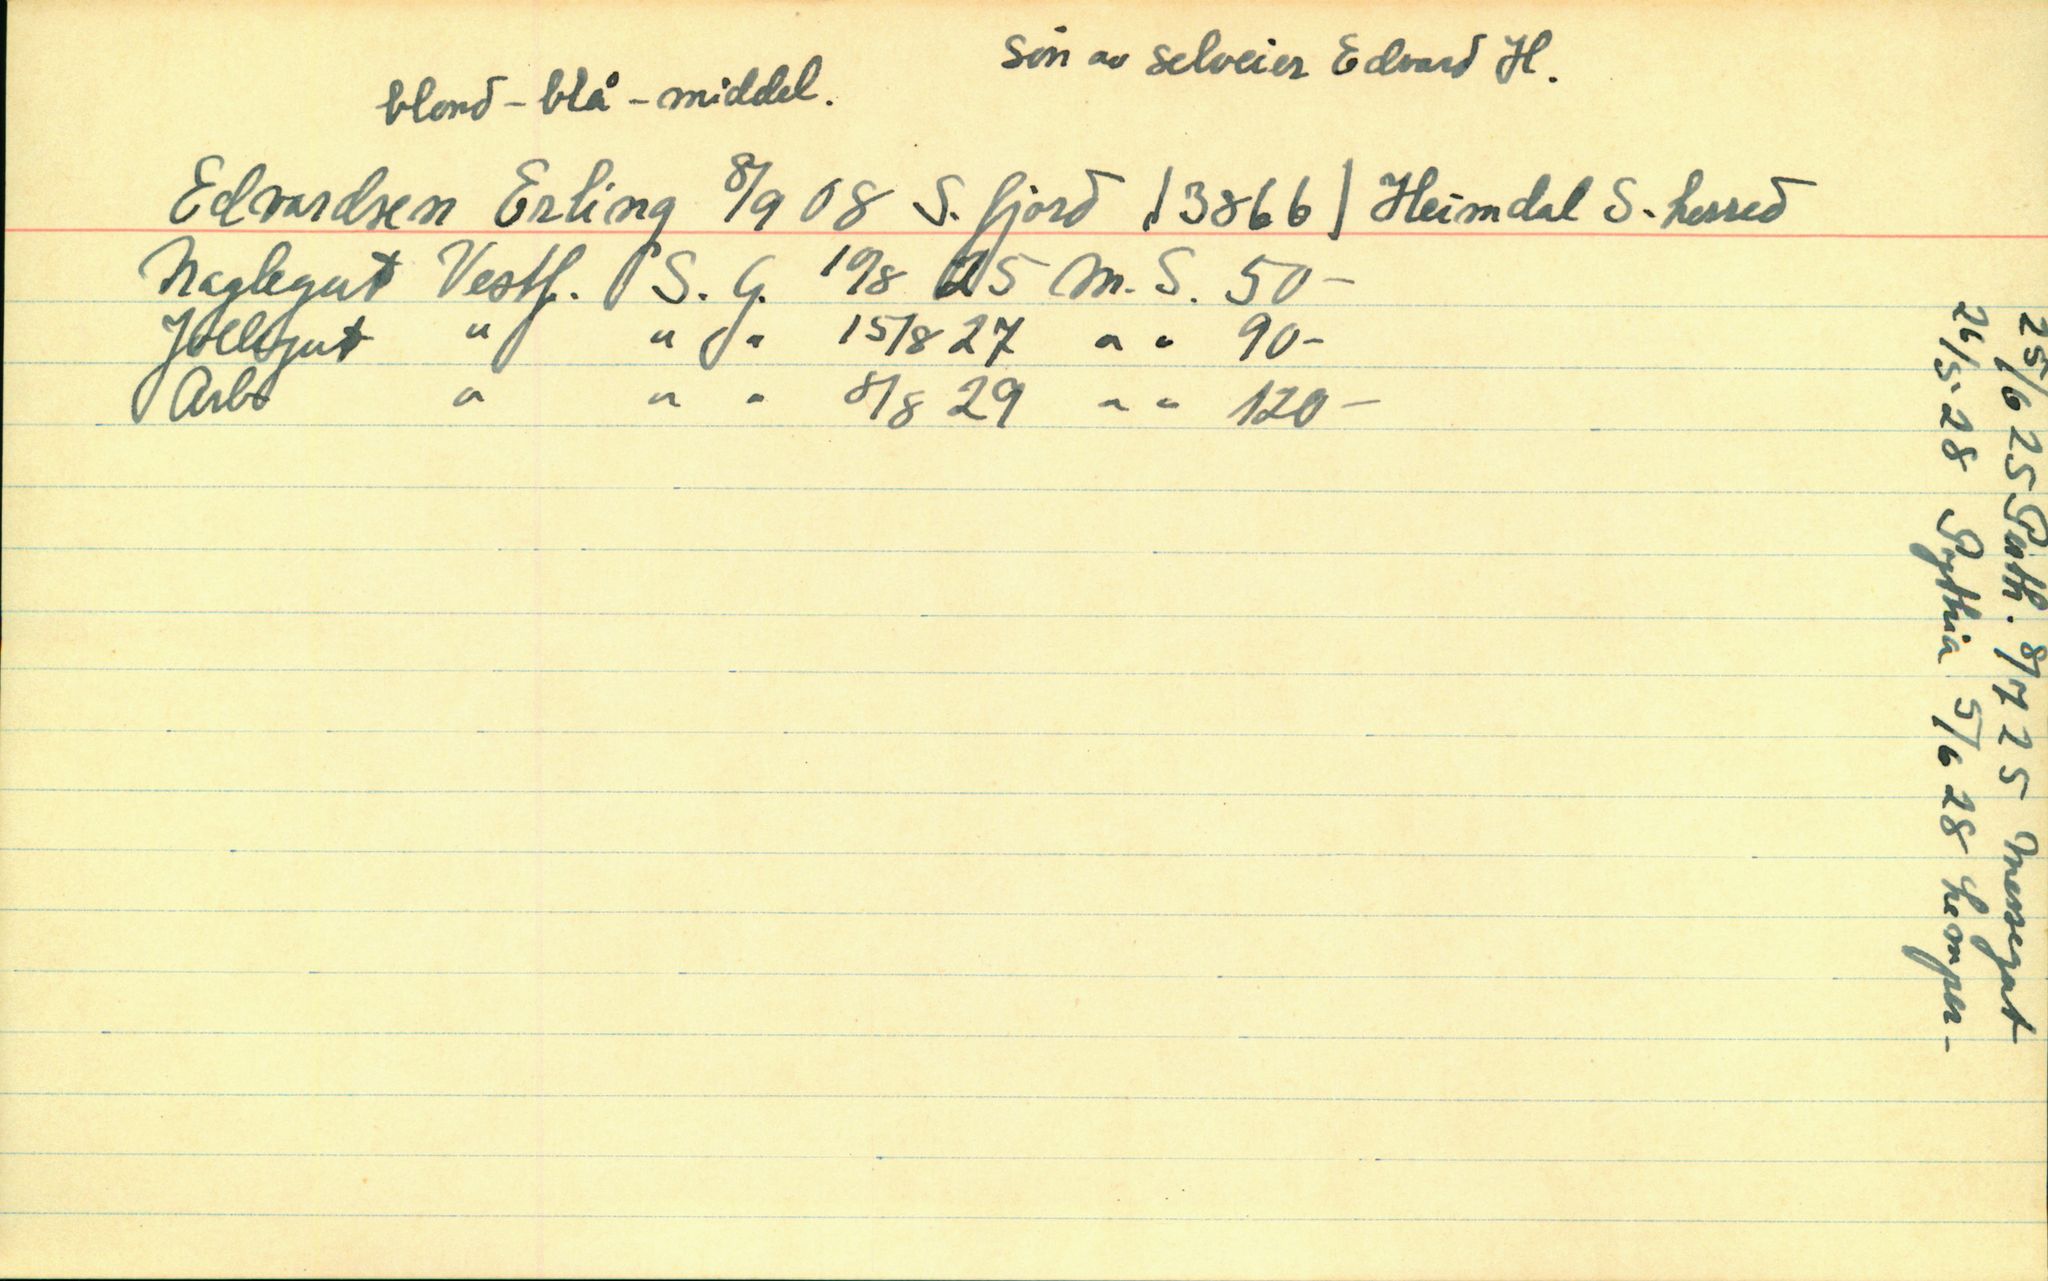 Søn av selveier Edvard H.
blond - blå - middel.
Edvardsen Erling 8/9 08 S. fjord (3866) Heimdal S. herred
Naglegut Vestf. S. G. 19/8 25 M. S. 50 -
Jollegut " " " 15/8 27 " " 90 -
Arb " " " 8/8 29 " " 120 -
25/6 25 Pyth. 8/7 25 Messegut
26/5 28 Pythia 5/6 28 Lemper -